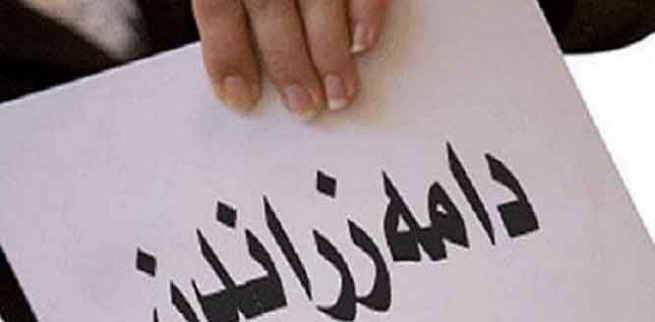 دامه‌زراندن